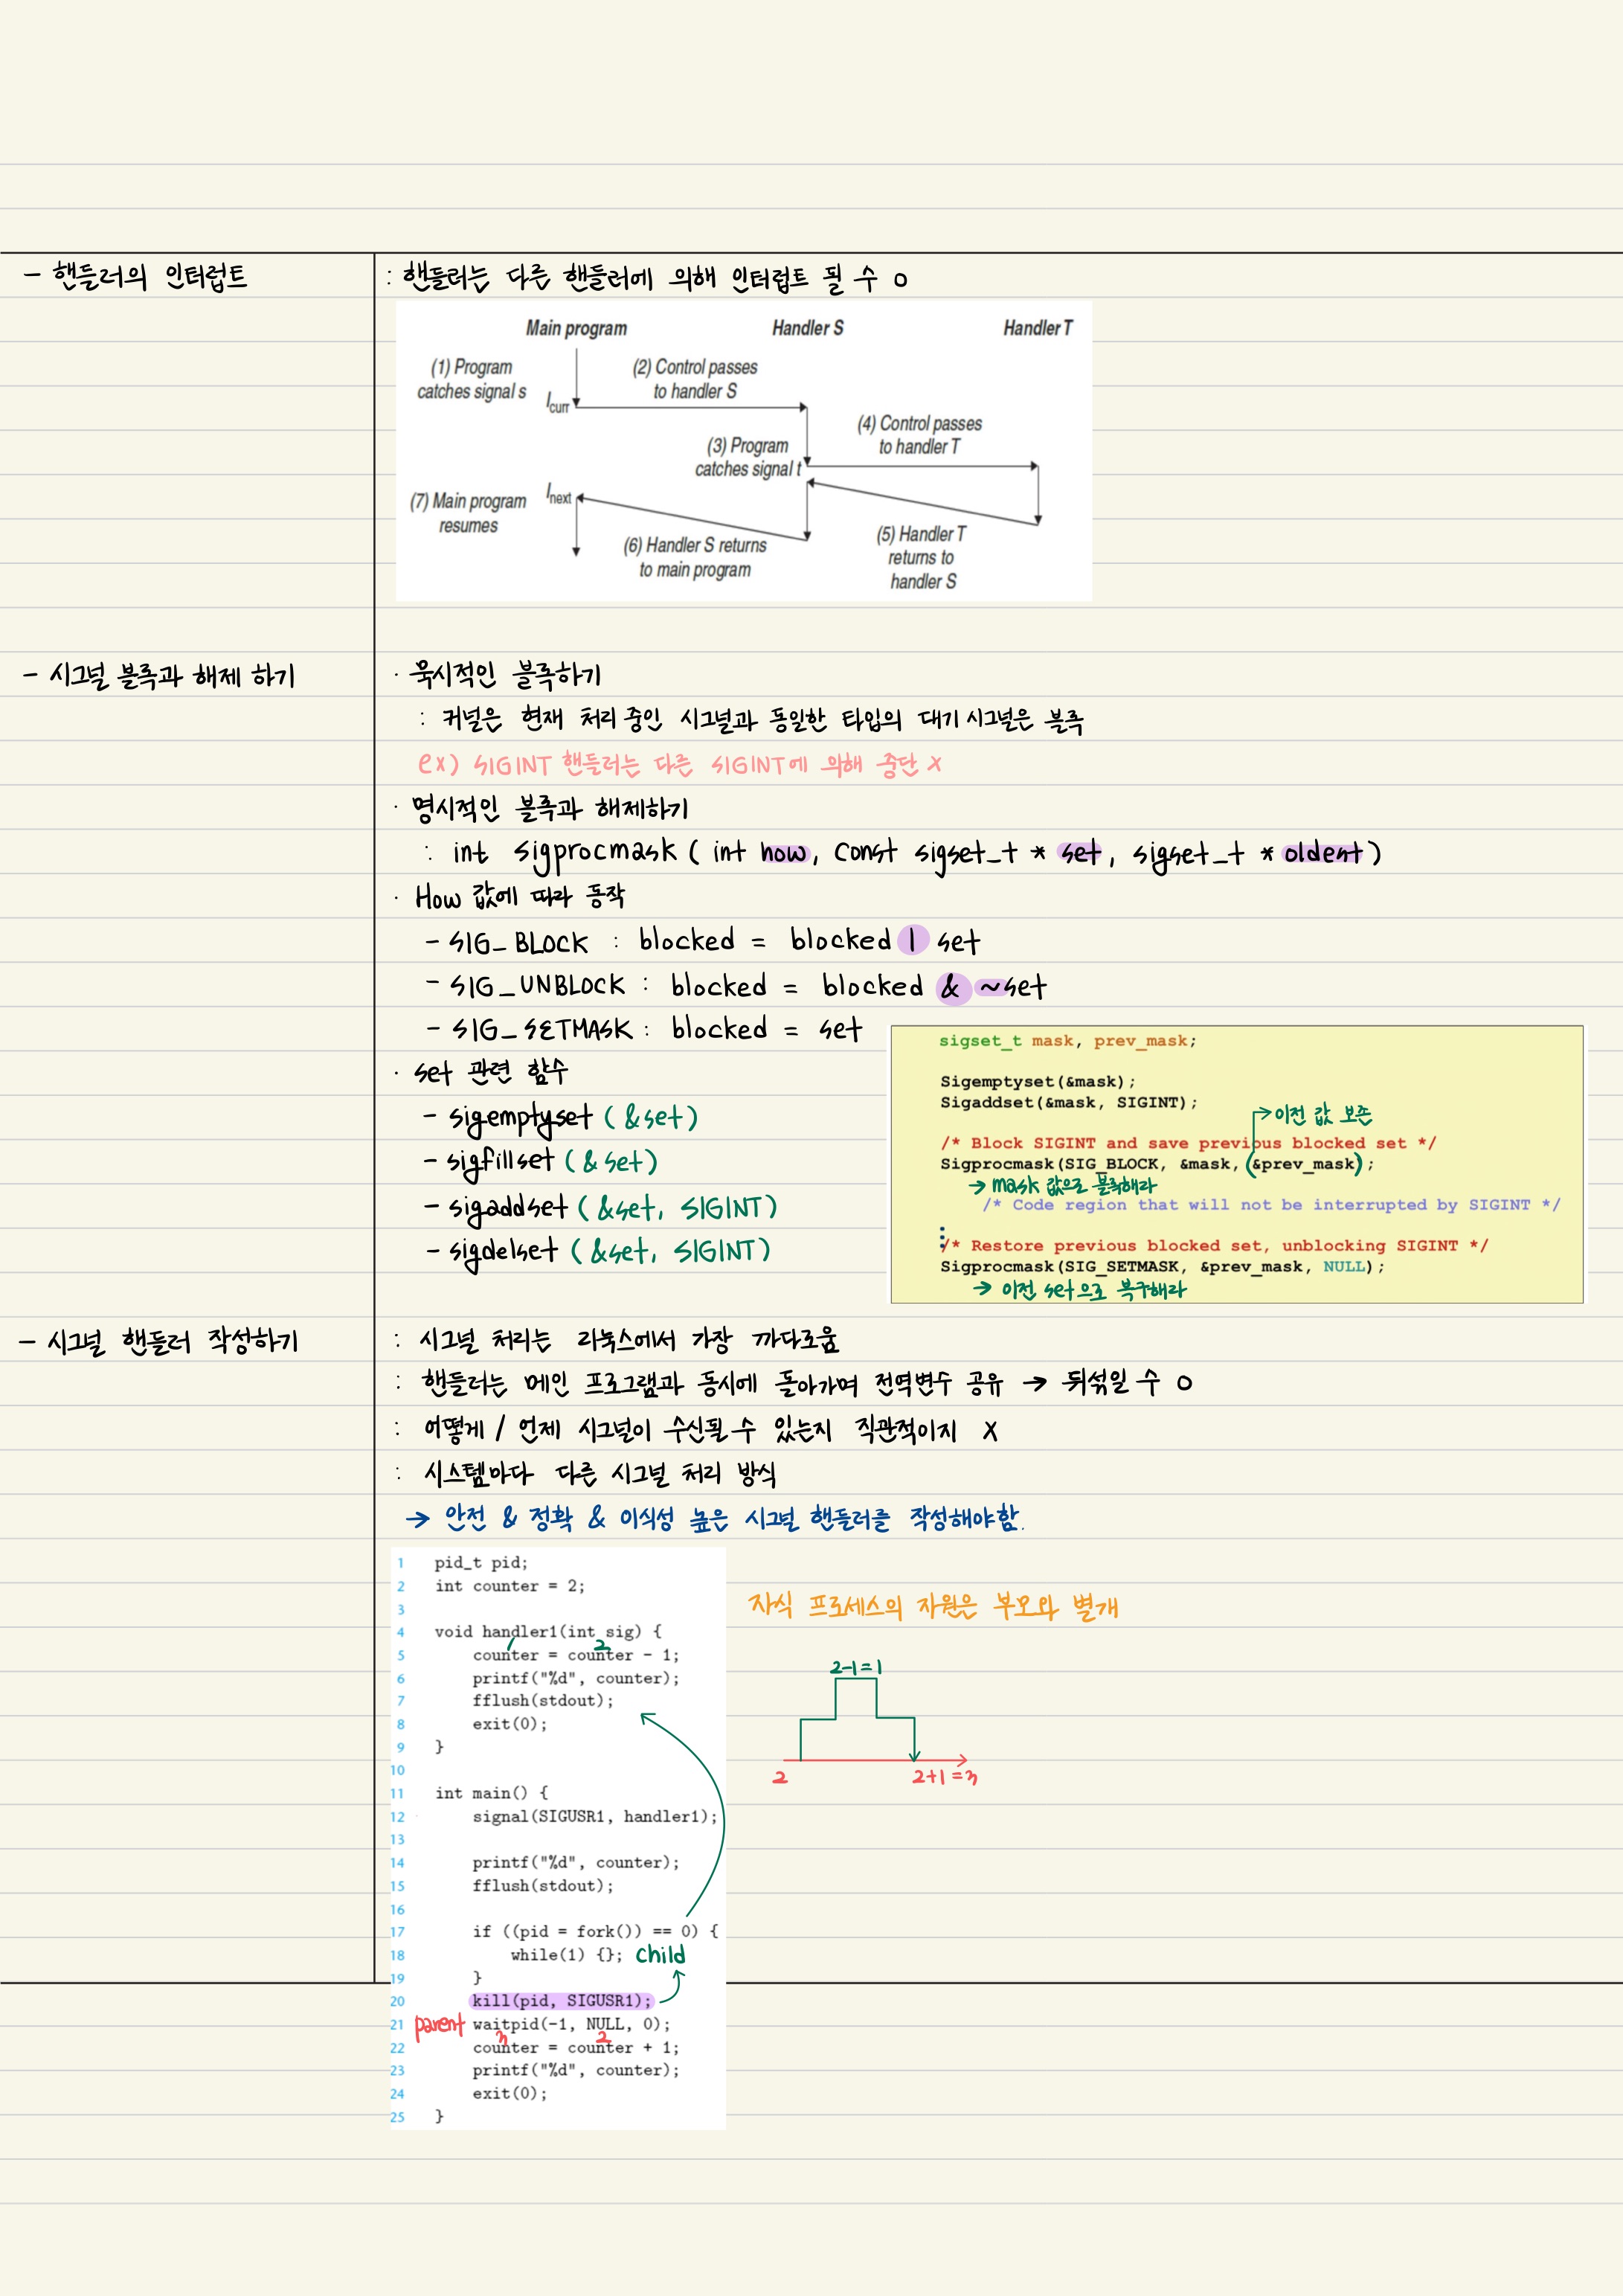 - 핸들러의 인터럽트
: 핸들러는 다른 핸들러에 의해 인터럽트 될 수 o
Main program Handler S Handler T
(1) Program
catches signal s
Icurr
(2) Control passes
to handler S
(3) Program
catches signal t
(4) Control passes
to handler T
(5) Handler T
returns to
handler S
(6) Handler S returns
to main program
(7) Main program
resumes
Inext
- 시그널 블록과 해제 하기
· 묵시적인 블록하기
: 커널은 현재 처리 중인 시그널과 동일한 타입의 대기 시그널은 블록
ex) SIGINT 핸들러는 다른 SIGINT에 의해 중단 x
· 명시적인 블록과 해제하기
: int sigprocmask ( int how, const sigset_t * set, sigset_t * oldest )
· How 값에 따라 동작
- SIG_BLOCK : blocked = blocked | set
- SIG_UNBLOCK : blocked = blocked & ~set
- SIG_SETMASK : blocked = set
· set 관련 함수
- sigemptyset ( &set )
- sigfillset ( & set )
- sigaddset ( &set, SIGINT )
- sigdelset ( &set, SIGINT )
sigset_t mask, prev_mask;
Sigemptyset(&mask);
Sigaddset(&mask, SIGINT);
→ 이전 값 보존
/* Block SIGINT and save previous blocked set */
Sigprocmask(SIG_BLOCK, &mask, (&prev_mask);
→ mask 값으로 블록해라
/* Code region that will not be interrupted by SIGINT */
⋮
/* Restore previous blocked set, unblocking SIGINT */
Sigprocmask(SIG_SETMASK, &prev_mask, NULL);
→ 이전 set으로 복구해라
- 시그널 핸들러 작성하기
: 시그널 처리는 리눅스에서 가장 까다로움
: 핸들러는 메인 프로그램과 동시에 돌아가며 전역변수 공유 → 뒤섞일 수 o
: 어떻게 / 언제 시그널이 수신될 수 있는지 직관적이지 x
: 시스템마다 다른 시그널 처리 방식
→ 안전 & 정확 & 이식성 높은 시그널 핸들러를 작성해야함.
1 pid_t pid;
2 int counter = 2;
3
4 void handler1(int sig) {
1 2
5 counter = counter - 1;
6 printf("%d", counter);
7 fflush(stdout);
8 exit(0);
9 }
10
11 int main() {
12 signal(SIGUSR1, handler1);
13
14 printf("%d", counter);
15 fflush(stdout);
16
17 if ((pid = fork()) == 0) {
18 while(1) {}; child
19 }
20 kill(pid, SIGUSR1);
21 parent waitpid(-1, NULL, 0);
3 2
22 counter = counter + 1;
23 printf("%d", counter);
24 exit(0);
25 }
자식 프로세스의 자원은 부모와 별개
2-1=1
2 2+1=3